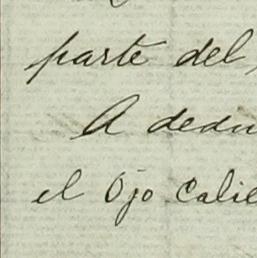 parte del
A dedu
el Ojo Calie